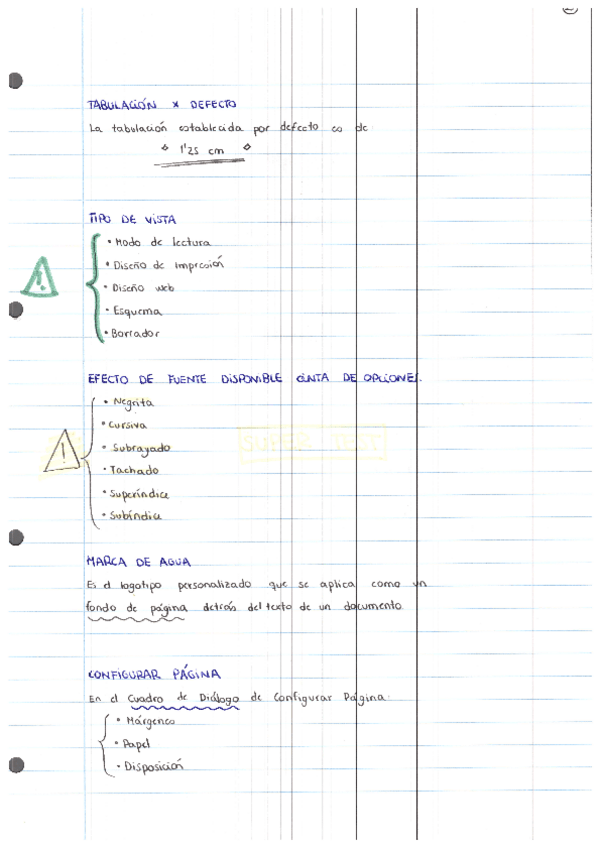 TABULACIÓN X DEFECTO
La tabulación establecida por defecto es de
1'25 cm
TIPO DE VISTA
• Modo de lectura
• Diseño de impresión
• Diseño web
• Esquema
• Borrador
!
EFECTO DE FUENTE DISPONIBLE CINTA DE OPCIONES.
• Negrita
• Cursiva
• Subrayado
• Tachado
• Superíndice
• Subíndice
!
SUPER TEST
MARCA DE AGUA
Es el logotipo personalizado que se aplica como un
fondo de página detrás del texto de un documento
CONFIGURAR PÁGINA
En el Cuadro de Diálogo de Configurar Página.
• Márgenes
• Papel
• Disposición